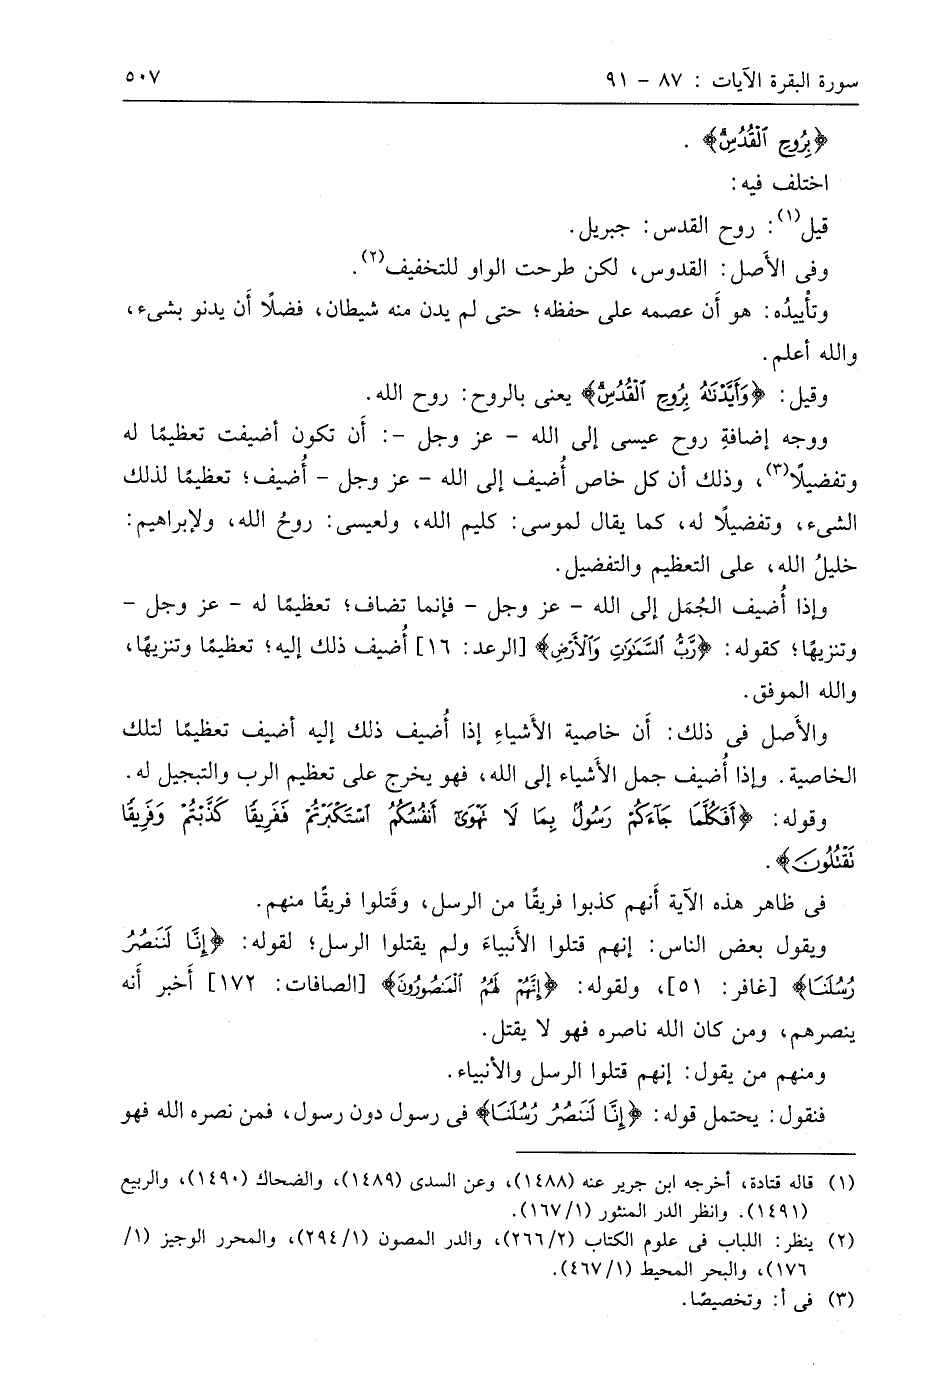 سورة البقرة الآيات : ٨٧ - ٩١ ٥٠٧
﴿بِرُوحِ ٱلْقُدُسِ﴾ .
اختلف فيه:
قيل(١): روح القدس: جبريل.
وفى الأَصل: القدوس، لكن طرحت الواو للتخفيف(٢).
وتأْييدُه: هو أَن عصمه على حفظه؛ حتى لم يدن منه شيطان، فضلًا أَن يدنو بشىء،
والله أعلم.
وقيل: ﴿وَأَيَّدْنَٰهُ بِرُوحِ ٱلْقُدُسِ﴾ يعنى بالروح: روح الله.
ووجه إضافةِ روح عيسى إلى الله - عز وجل -: أَن تكون أضيفت تعظيمًا له
وتفضيلًا(٣)، وذلك أن كل خاص أُضيف إلى الله - عز وجل - أُضيف؛ تعظيمًا لذلك
الشىء، وتفضيلًا له، كما يقال لموسى: كليم الله، ولعيسى: روحُ الله، ولإبراهيم:
خليلُ الله، على التعظيم والتفضيل.
وإذا أُضيف الجُمَل إلى الله - عز وجل - فإنما تضاف؛ تعظيمًا له - عز وجل -
وتنزيهًا؛ كقوله: ﴿رَّبُّ ٱلسَّمَٰوَٰتِ وَٱلْأَرْضِ﴾ [الرعد: ١٦] أُضيف ذلك إليه؛ تعظيمًا وتنزيهًا،
والله الموفق.
والأَصل فى ذلك: أَن خاصية الأشياءِ إذا أُضيف ذلك إليه أضيف تعظيمًا لتلك
الخاصية. وإذا أُضيف جمل الأَشياء إلى الله، فهو يخرج على تعظيم الرب والتبجيل له.
وقوله: ﴿أَفَكُلَّمَا جَآءَكُمْ رَسُولٌۢ بِمَا لَا تَهْوَىٰٓ أَنفُسُكُمُ ٱسْتَكْبَرْتُمْ فَفَرِيقًا كَذَّبْتُمْ وَفَرِيقًا
تَقْتُلُونَ﴾ .
فى ظاهر هذه الآية أَنهم كذبوا فريقًا من الرسل، وقَتلوا فريقًا منهم.
ويقول بعض الناس: إنهم قتلوا الأَنبياءَ ولم يقتلوا الرسل؛ لقوله: ﴿إِنَّا لَنَنصُرُ
رُسُلَنَا﴾ [غافر: ٥١]، ولقوله: ﴿إِنَّهُمْ لَهُمُ ٱلْمَنصُورُونَ﴾ [الصافات: ١٧٢] أَخبر أَنه
ينصرهم، ومن كان الله ناصره فهو لا يقتل.
ومنهم من يقول: إنهم قتلوا الرسل والأنبياء.
فنقول: يحتمل قوله: ﴿إِنَّا لَنَنصُرُ رُسُلَنَا﴾ فى رسول دون رسول، فمن نصره الله فهو
(١) قاله قتادة، أخرجه ابن جرير عنه (١٤٨٨)، وعن السدى (١٤٨٩)، والضحاك (١٤٩٠)، والربيع
(١٤٩١). وانظر الدر المنثور (١/١٦٧).
(٢) ينظر: اللباب فى علوم الكتاب (٢/٢٦٦)، والدر المصون (١/٢٩٤)، والمحرر الوجيز (١/
١٧٦)، والبحر المحيط (١/٤٦٧).
(٣) فى أ: وتخصيصًا.